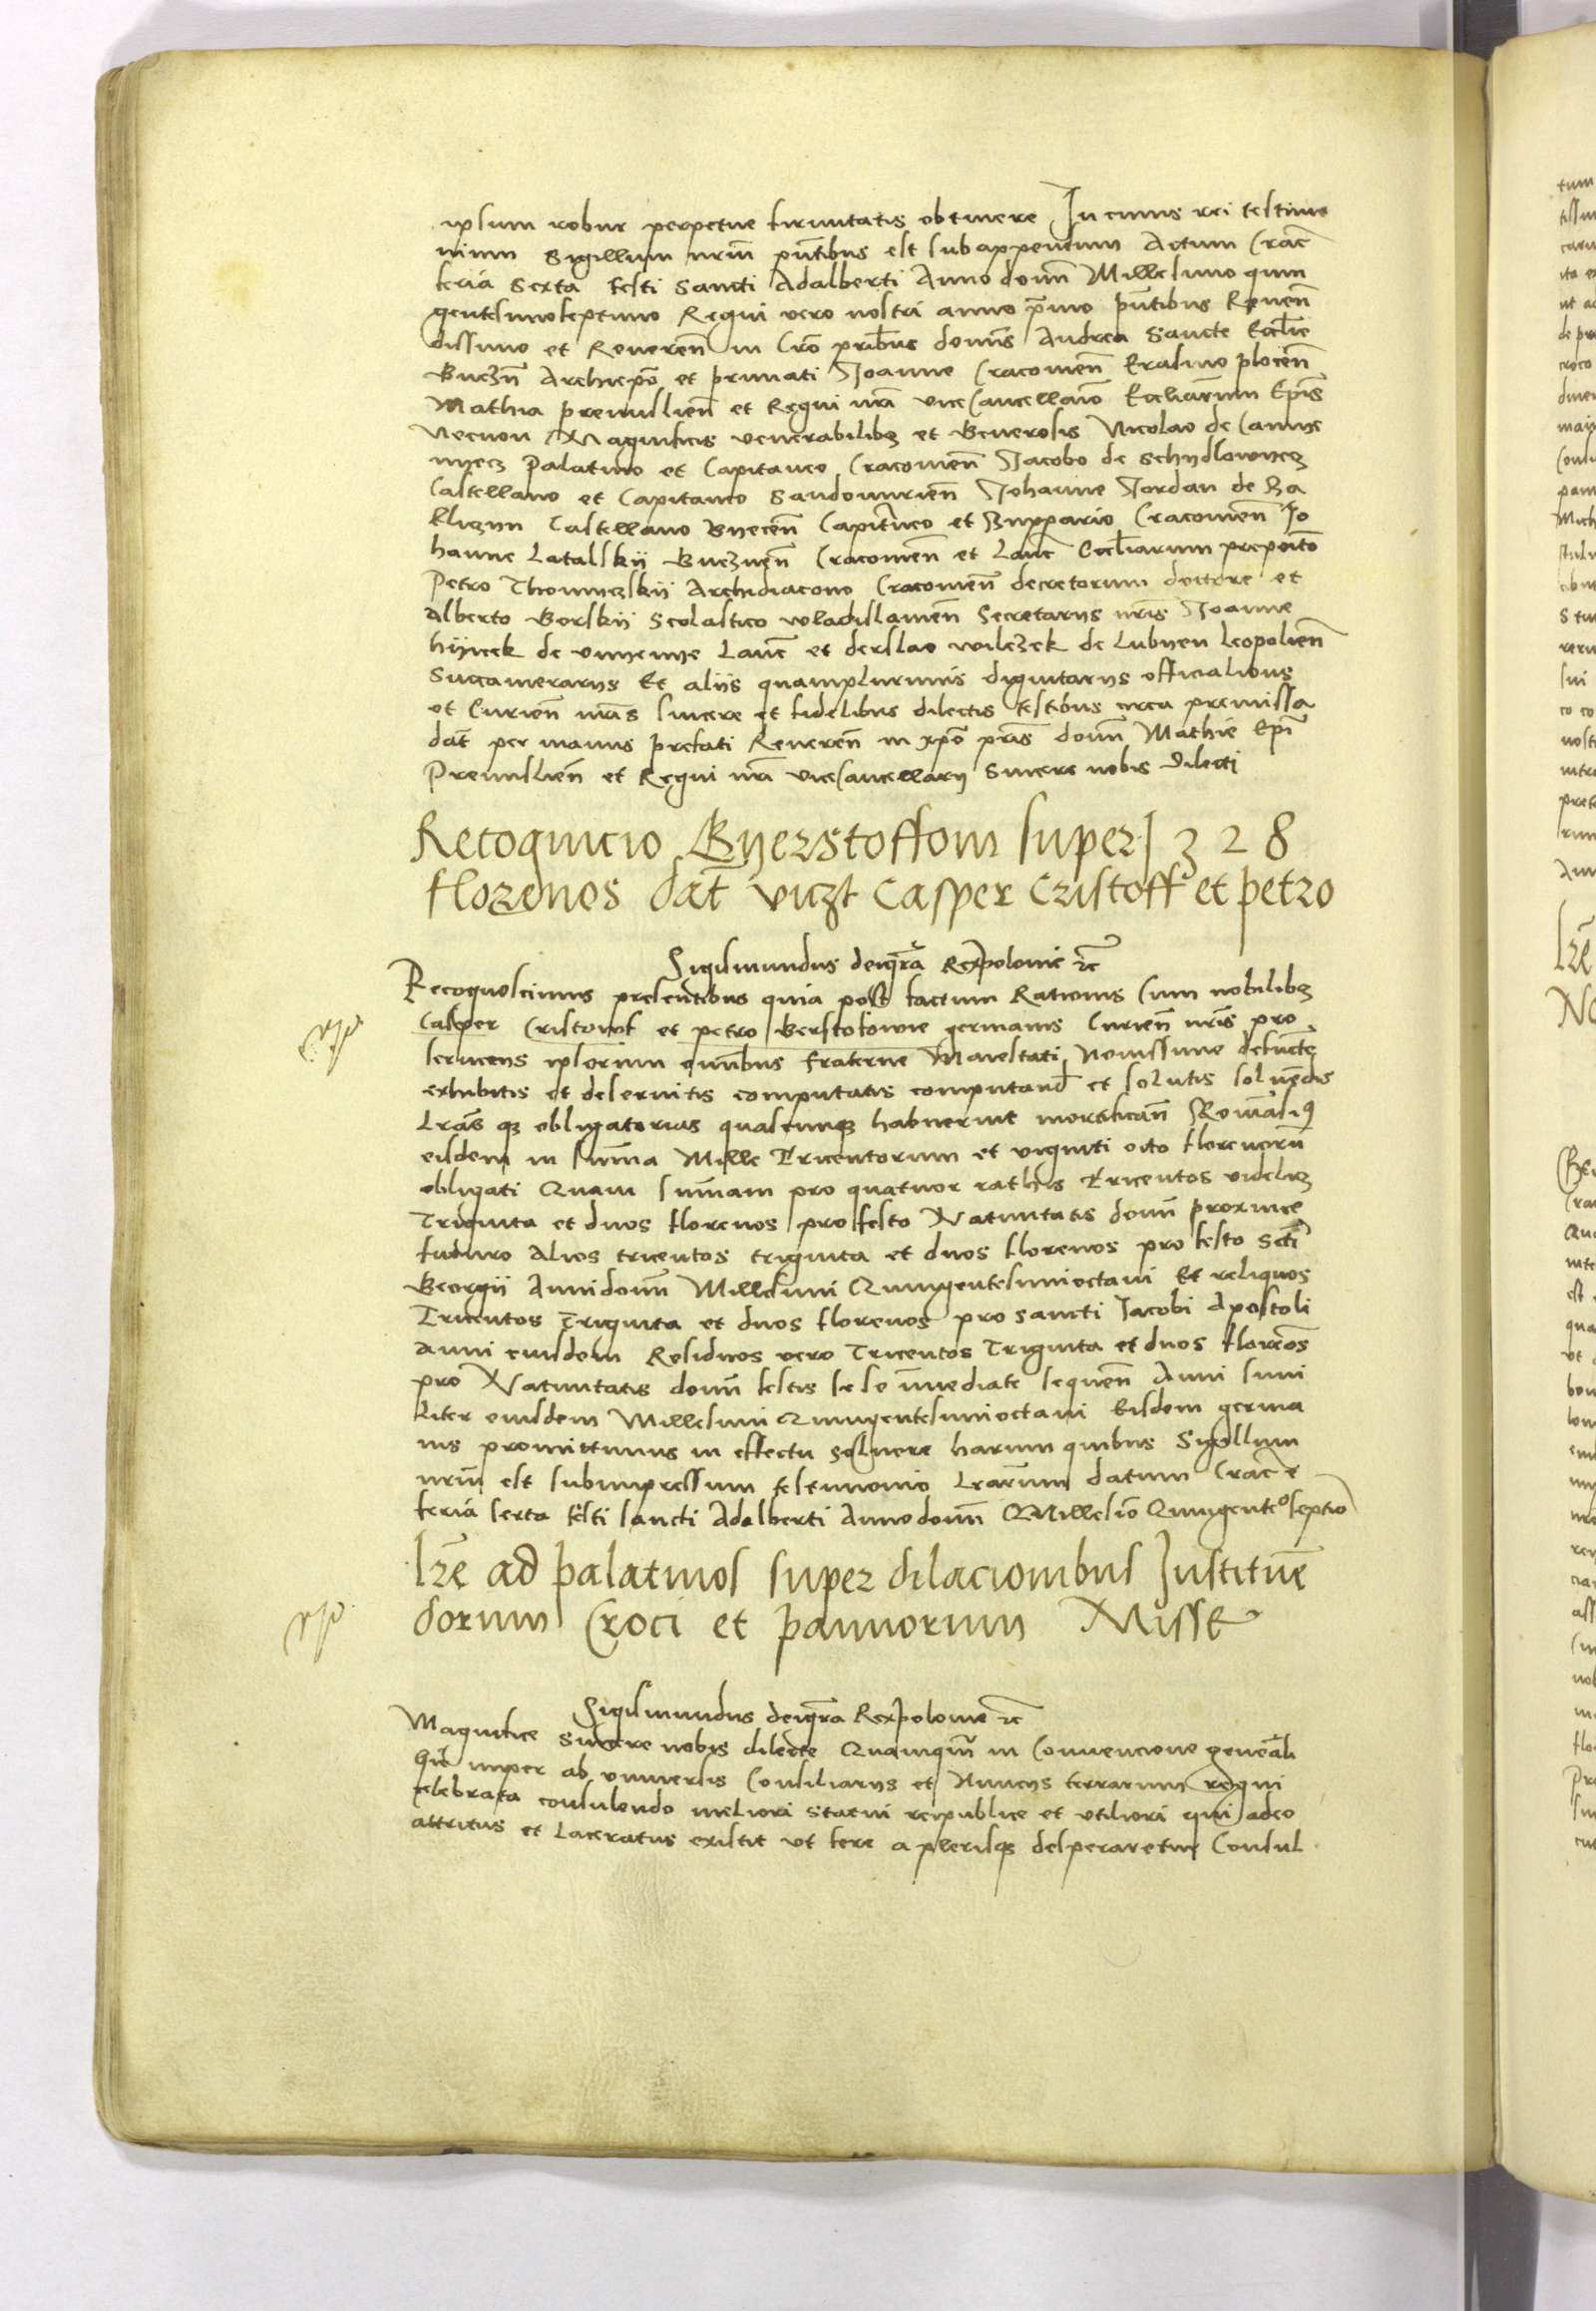 ipsum robur perpetue firmitatis obtinere In cuius rei testimo
nium Sigillum nrm̃ pñtibus est subappensum Actum Crac̃
feria Sexta festi Sancti Adalberti Anno domĩ Millesimo quin
gentesimoseptimo Regni vero nostri anno p̃mo pñtibus Reuen̄
dissimo et Reueren̄ in Cr̃o pr̃ibus domĩs Andrea Sancte Eccl̃ie
Gnezn̄ Archiep̃o et primati Joanne Cracouien̄ Erasmo plocen̄
Mathia premislien̄ et Regni nr̃i vicecancellar̃io Eccliar̃um Ep̃is
Necnon Magnificis venerabilibꝫ et Generosis Nicolao de Camye
nyecz Palatino et Capitaneo Cracouien̄ Jacobo de Schydlowyecz
Castellano et Capitaneo Sandomirien̄ Johanne Jordan de Za
kliczyn Castellano Byecen̄ Capit̃neo et Zuppario Cracouien̄ Jo
hanne Latalskij Gneznen̄ Cracouien̄ et Lanc̃ Eccl̃iarum preposito
Petro Thomyczskij Archidiacono Cracouien̄ decretorum doctore et
Alberto Gorskij Scolastico wladislauien̄ Secretarijs nr̃is Joanne
hijncek de Lanc̃ et derslao wilczek de Lubyen Leopolien̄
Succamerarijs Et alijs quamplurimis dignitarijs officialibus
et Curien̄ nr̃is sincere et fidelibus dilectis testibus circa premissa
dat̃ per manus prefati Reueren̄ in xp̃o pr̃is domĩ Mathie Ep̃i
Premislien̄ et Regni nr̃i vicecancellarij Sincere nobis dilecti
Recognicio Byerstoffom super 1328
florenos dat̃ viczt Casper Cristoff et petro
Sigismundus deigr̃a Rexpolonie ꝛc̃
Recognoscimus presentibus quia post factum Rationis Cum nobilibꝫ
Casper Cristof et petro Berstofowie germanis Curien̄ nr̃is pro
seruicijs ipsorum omnibus fraterne Maiestati Nouissime defuncte
exhibitis et deseruitis computatis computand̃ et solutis soluẽdis
Lr̃as qꝫ obligatorias quascunqꝫ habuerint Romãsimꝰ
eisdem in sum̃a Mille Tricentorum et viginti octo florenorũ
obligati Quam sum̃am pro quatuor rathis Tricentos videlicꝫ
Triginta et duos florenos pro festo Natiuitatis domĩ proxime
futuro Alios tricentos triginta et duos florenos pro festo Sc̃ti
Georgij Annidomĩ Millesimi Quingentesimioctaui Et reliquos
Tricentos Triginta et duos florenos pro sancti Jacobi Apostoli
Anni eiusdem Residuos vero Tricentos Triginta et duos florẽos
pro Natiuitatis domĩ festis se se im̃ediate sequen̄ Anni simi
liter eiusdem Millesimi Quingentesimioctaui Eisdem germa
nis promittimus in effectu soluere harum quibus Sigillum
nrm̃ est subimpressum testimonio Lrar̃um datum Crac̃e
feria sexta festi sancti Adalberti Annodomĩ Millesĩo Quingenteᵒseptĩo
lrẽ ad palatinos super dilacionibus Justituẽ
dorum Croci et pannorum Misse
Sigismundus deigr̃a Rexpolonie ꝛc̃
Magnifice Sincere nobis dilecte Quamqm̃ in Conuencione genera̅li
hic nuper ab vniuersis Consiliarijs et Nuncijs terrarum regni
celebrata consulendo meliori statui reipublice et vtiliori qui adeo
attritus et Laceratus existit vt fere a plerisqꝫ desperaretur Consul